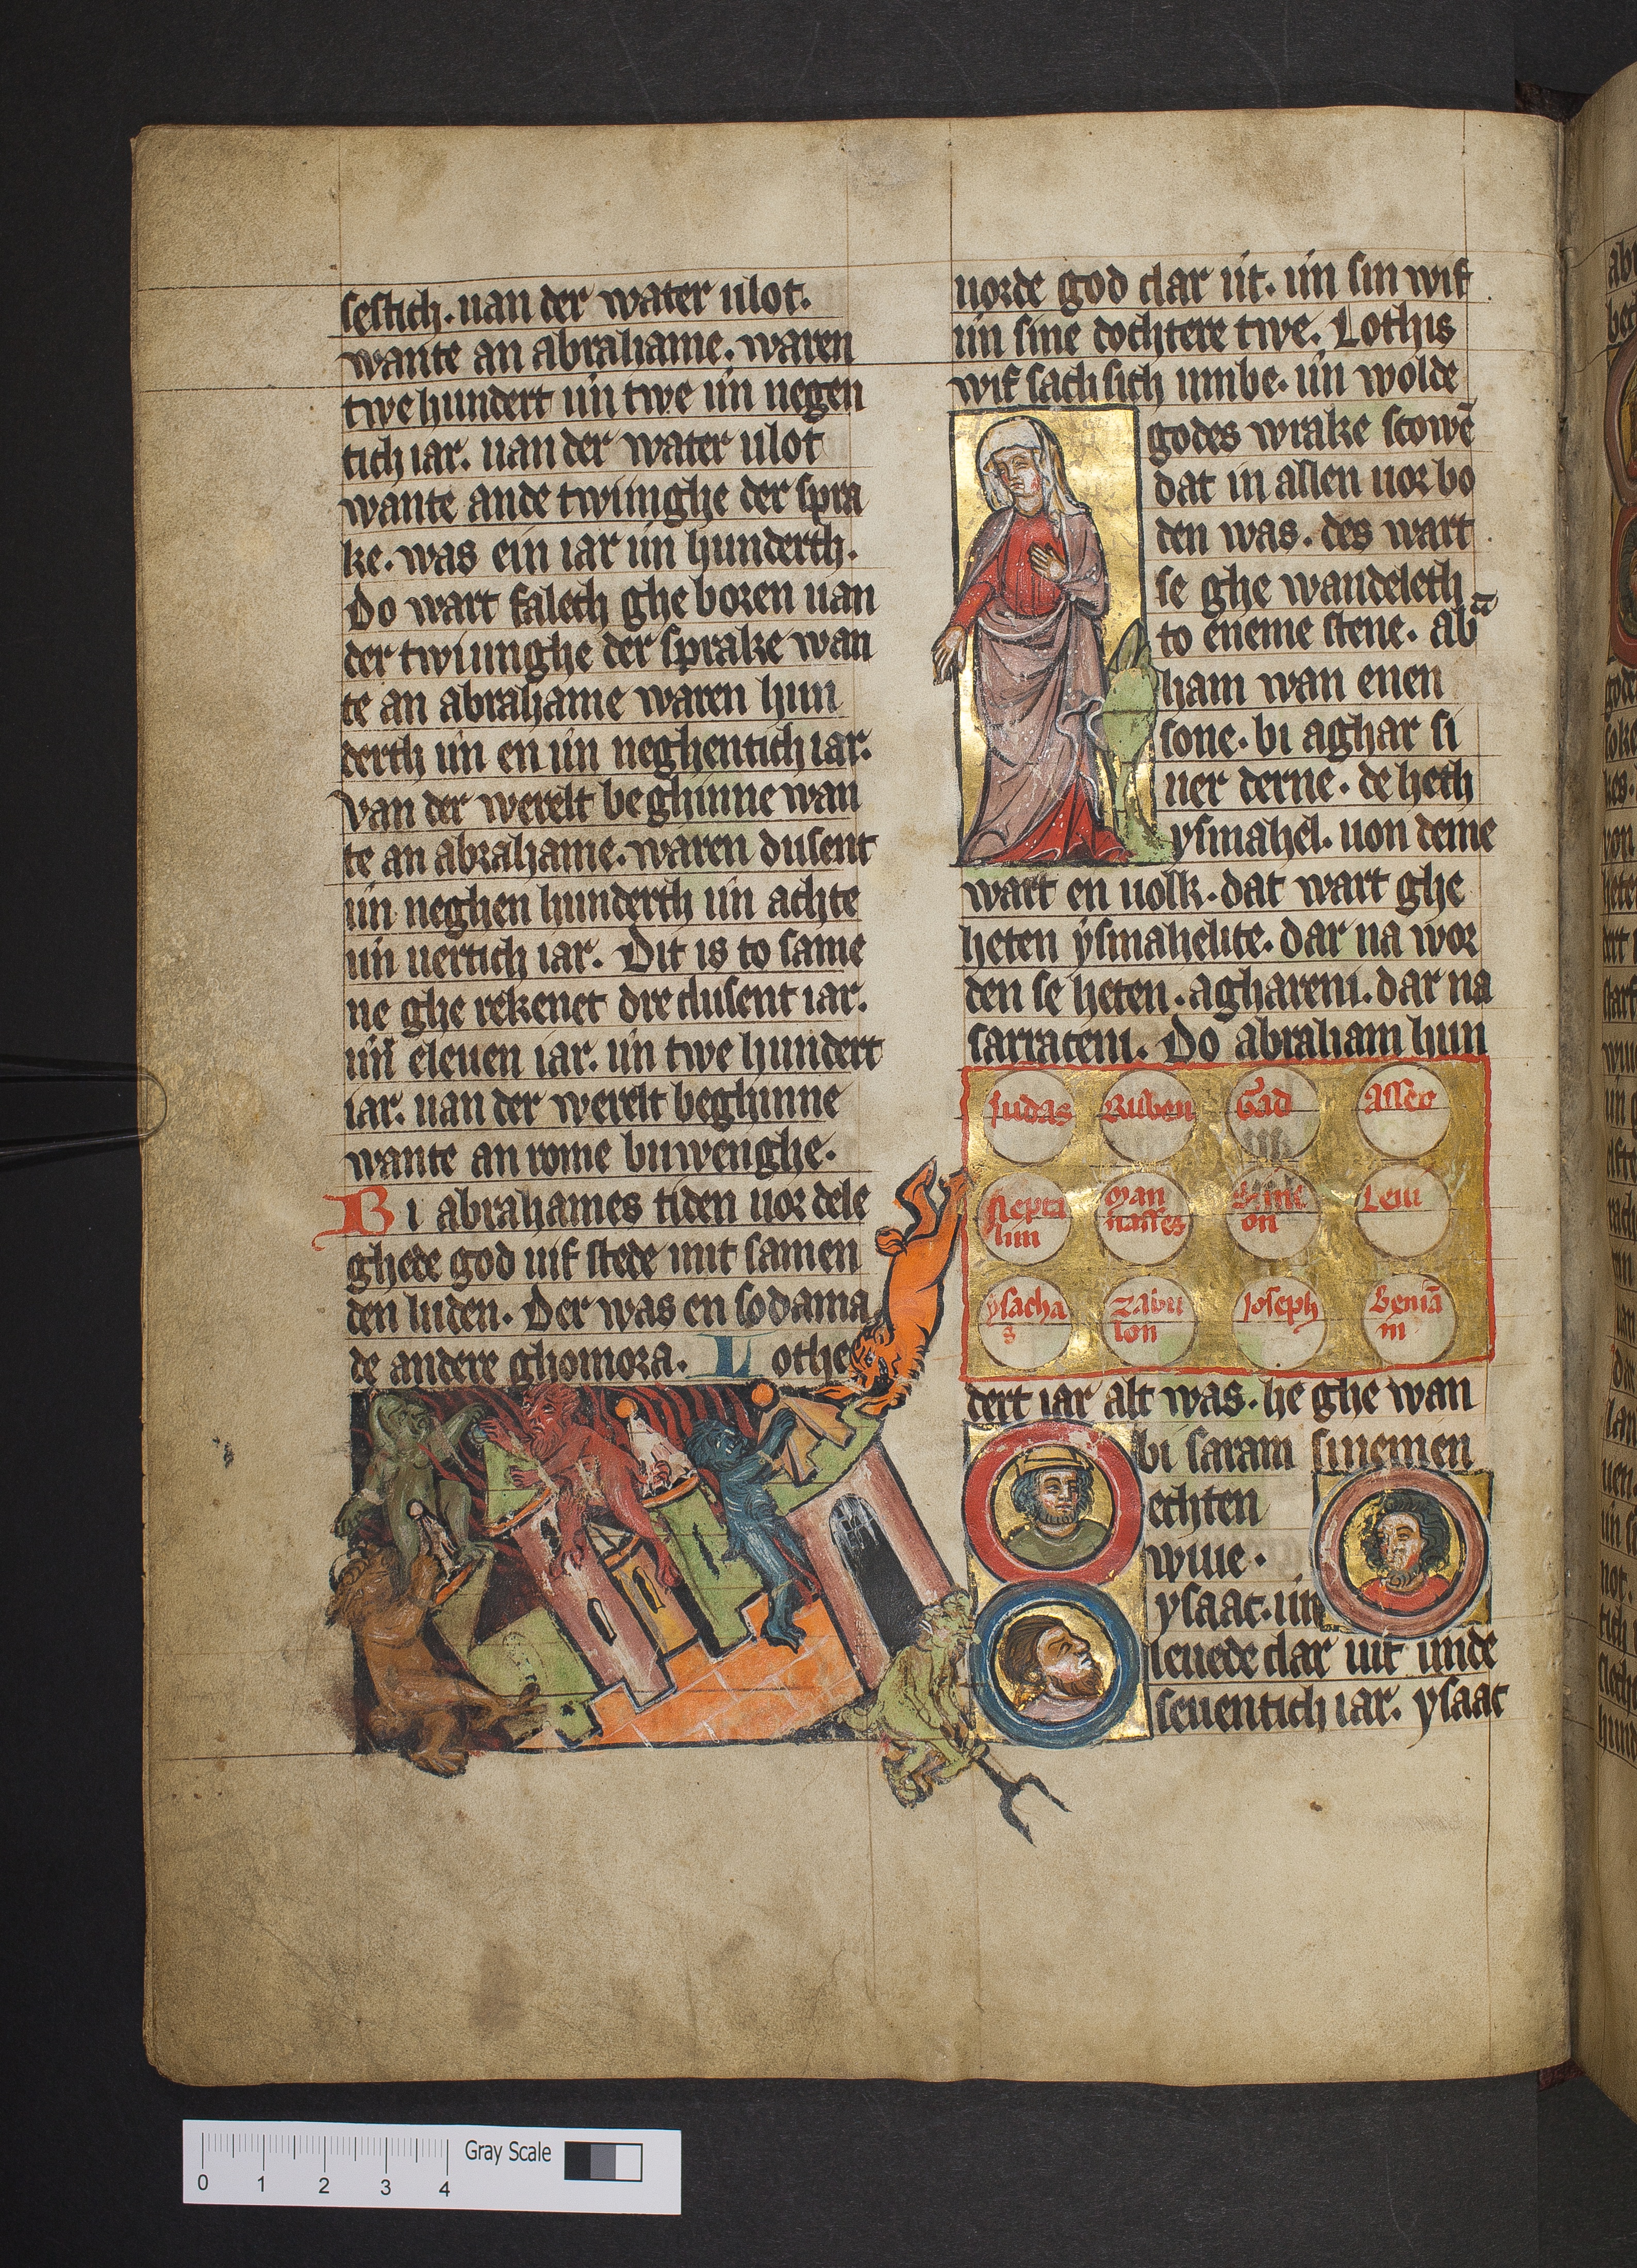 sestich. uan der water ulot.
wante an abrahame. waren
twehundert un̄ twe un̄ negen
tich iar. uan der water ulot
wante ande twiinghe der spra
ke. was ein iar un̄ hunderth.
Do wart falech ghe boren uan
der twiunghe der sprake wan
te an abrahame waren hun
derth un̄ en un̄ neghentich iar.
Van der werelt beghinne wan
te an abrahame. waren dusent
un̄ neghen hunderth un̄ achte
un̄ uertich iar. Dit is to same
ne ghe rekenet dre dusent iar.
un̄ eleuen iar. un̄ twe hundert
iar. uan der werelt beghinne
wante an rome buwenghe.
Bi abrahames tiden uor dele
ghede god uif stede mit samen
den luden. Der was en sodama
de andere ghomora. Lothe
uorde god dar ut. un̄ sin wif
un̄ sine dochtere twe. Lothis
wif sach sich umbe. un̄ wolde
godes wrake scowē
dat in allen uor bo
den was. des wart
se ghe wandeleth
to eneme stene. abᵃ
ham wan enen
sone. bi aghar si
ner derne. de heth
ysmahel. uon deme
wart en uolk. dat wart ghe
heten ysmahelite. dar na wor
den se heten. aghareni. dar na
sarraceni. Do abraham hun
Iudas Ruben Gad Asser
Nepta
lim
Man
nasses
Sime
on
Leui
ysacha
s
Zabu
lon
Ioseph
Beniā
in
dert iar alt was. he ghe wan
bi saram sinemen
echten
wiue.
ysaac. un̄
leuede dar uif unde
seuentich iar. ysaac
0 1 2 3 4
Gray Scale